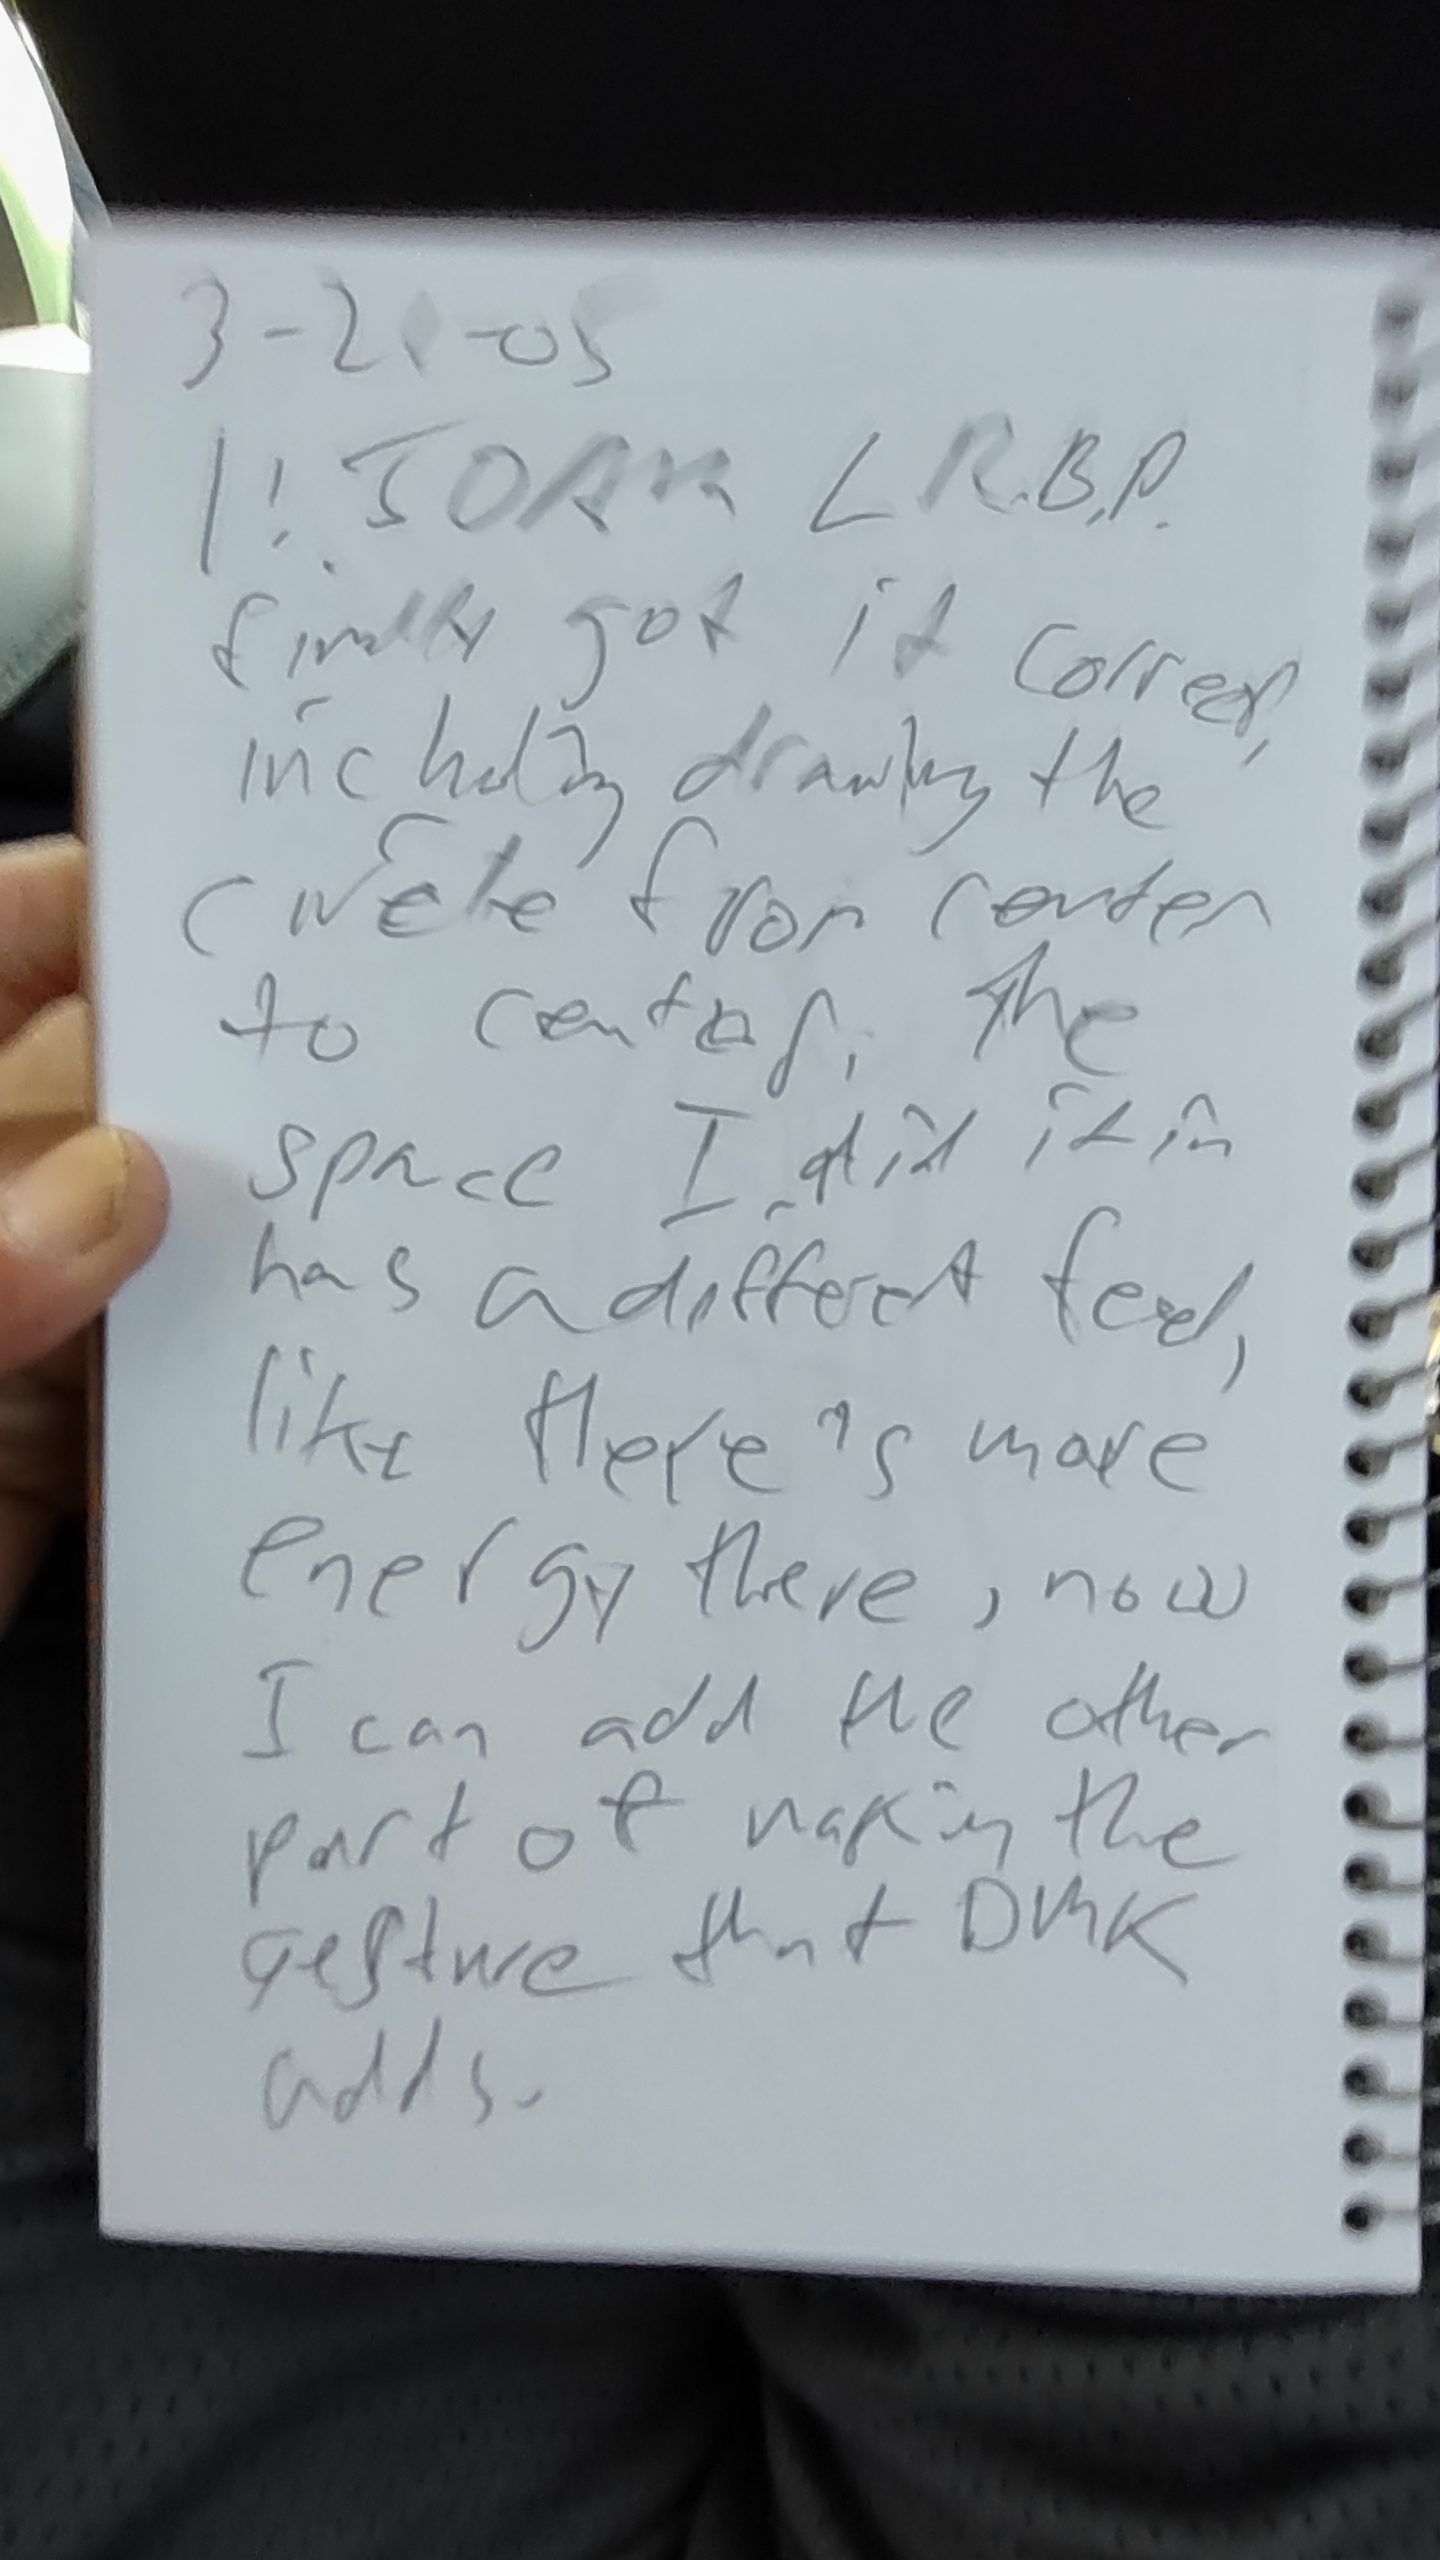 3-21-05
11:50AM L.R.B.P.
finally got it correct,
including drawing the
circle from center
to center, the
space I did it in
has a different feel,
like there's more
energy there, now
I can add the other
part of making the
gesture that DMK
adds.